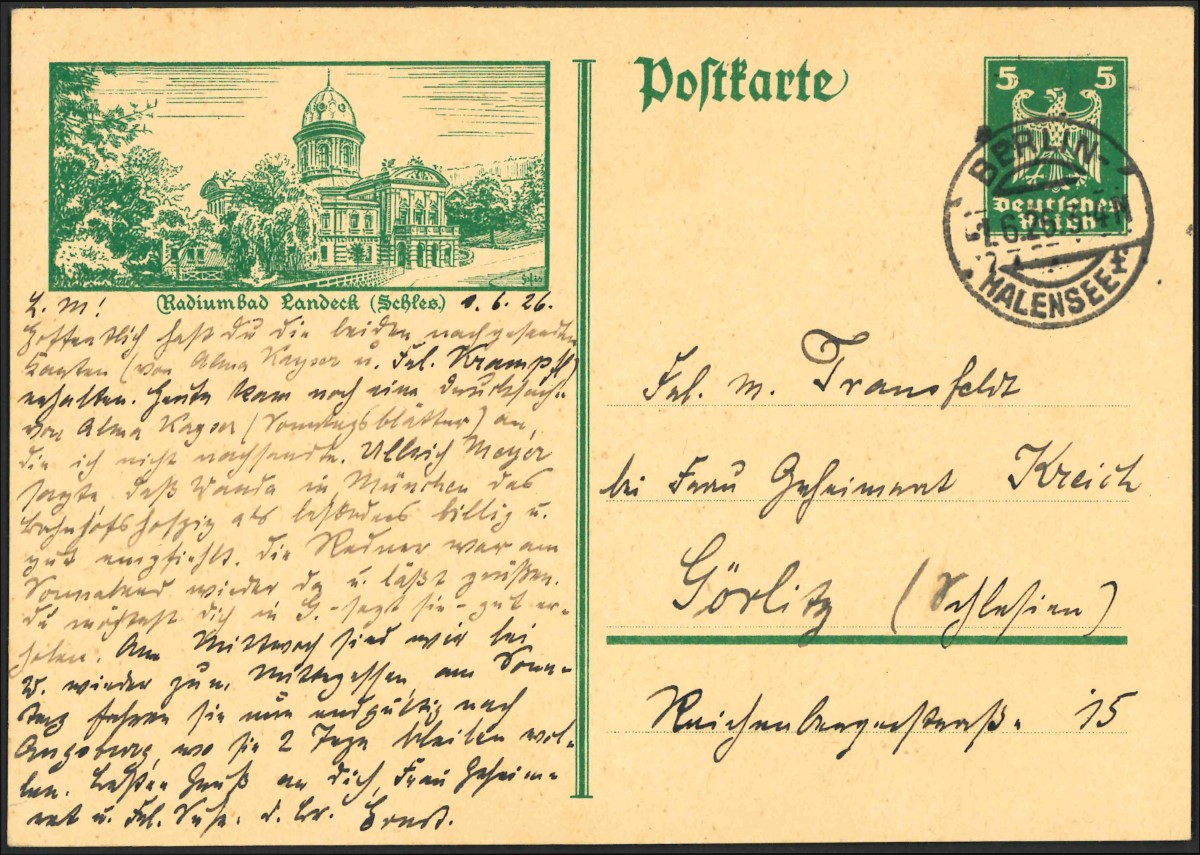 Postkarte
5 5
Deutsches
Reich
BERLIN-
1.6.26.3-4N
HALENSEE
Radiumbad Landeck (Schles.)
1. 6. 26.
L. M!
Hoffentlich hast du die beiden nachgesandten
Karten (von Alma Kayser u. Frl. Krampff)
erhalten. Heute kam noch eine Drucksache
von Alma Kayser (Sonntagsblätter) an,
die ich nicht nachsandte. Ullrich Meyer
sagte, daß Wanda in München das
Bahnhofshospiz als besonders billig u.
gut empfiehlt. Die Redner war am
Sonnabend wieder da u. läßt grüßen.
Du möchtest dich in G. - sagt sie - gut er-
holen. Am Mittwoch sind wir bei
W. wieder zum Mittagessen am Sonn-
tag fahren sie nun endgültig nach
Augsburg, wo sie 2 Tage bleiben wol-
len. Besten Gruß an dich, Frau Geheim-
rat u. Frl. d. Br. Ernst.
Frl. M. Transfeldt
bei Frau Geheimrat Kreich
Görlitz (Schlesien)
Reichenbergerstraße 15